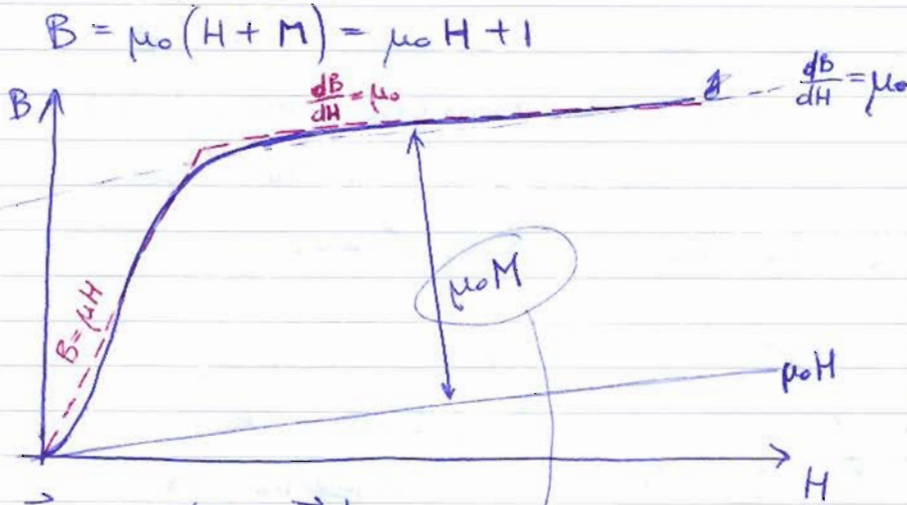 B = μ₀(H + M) = μ₀H + 1
B
dB/dH = μ₀
dB/dH = μ₀
B = μH
μ₀M
μ₀H
H